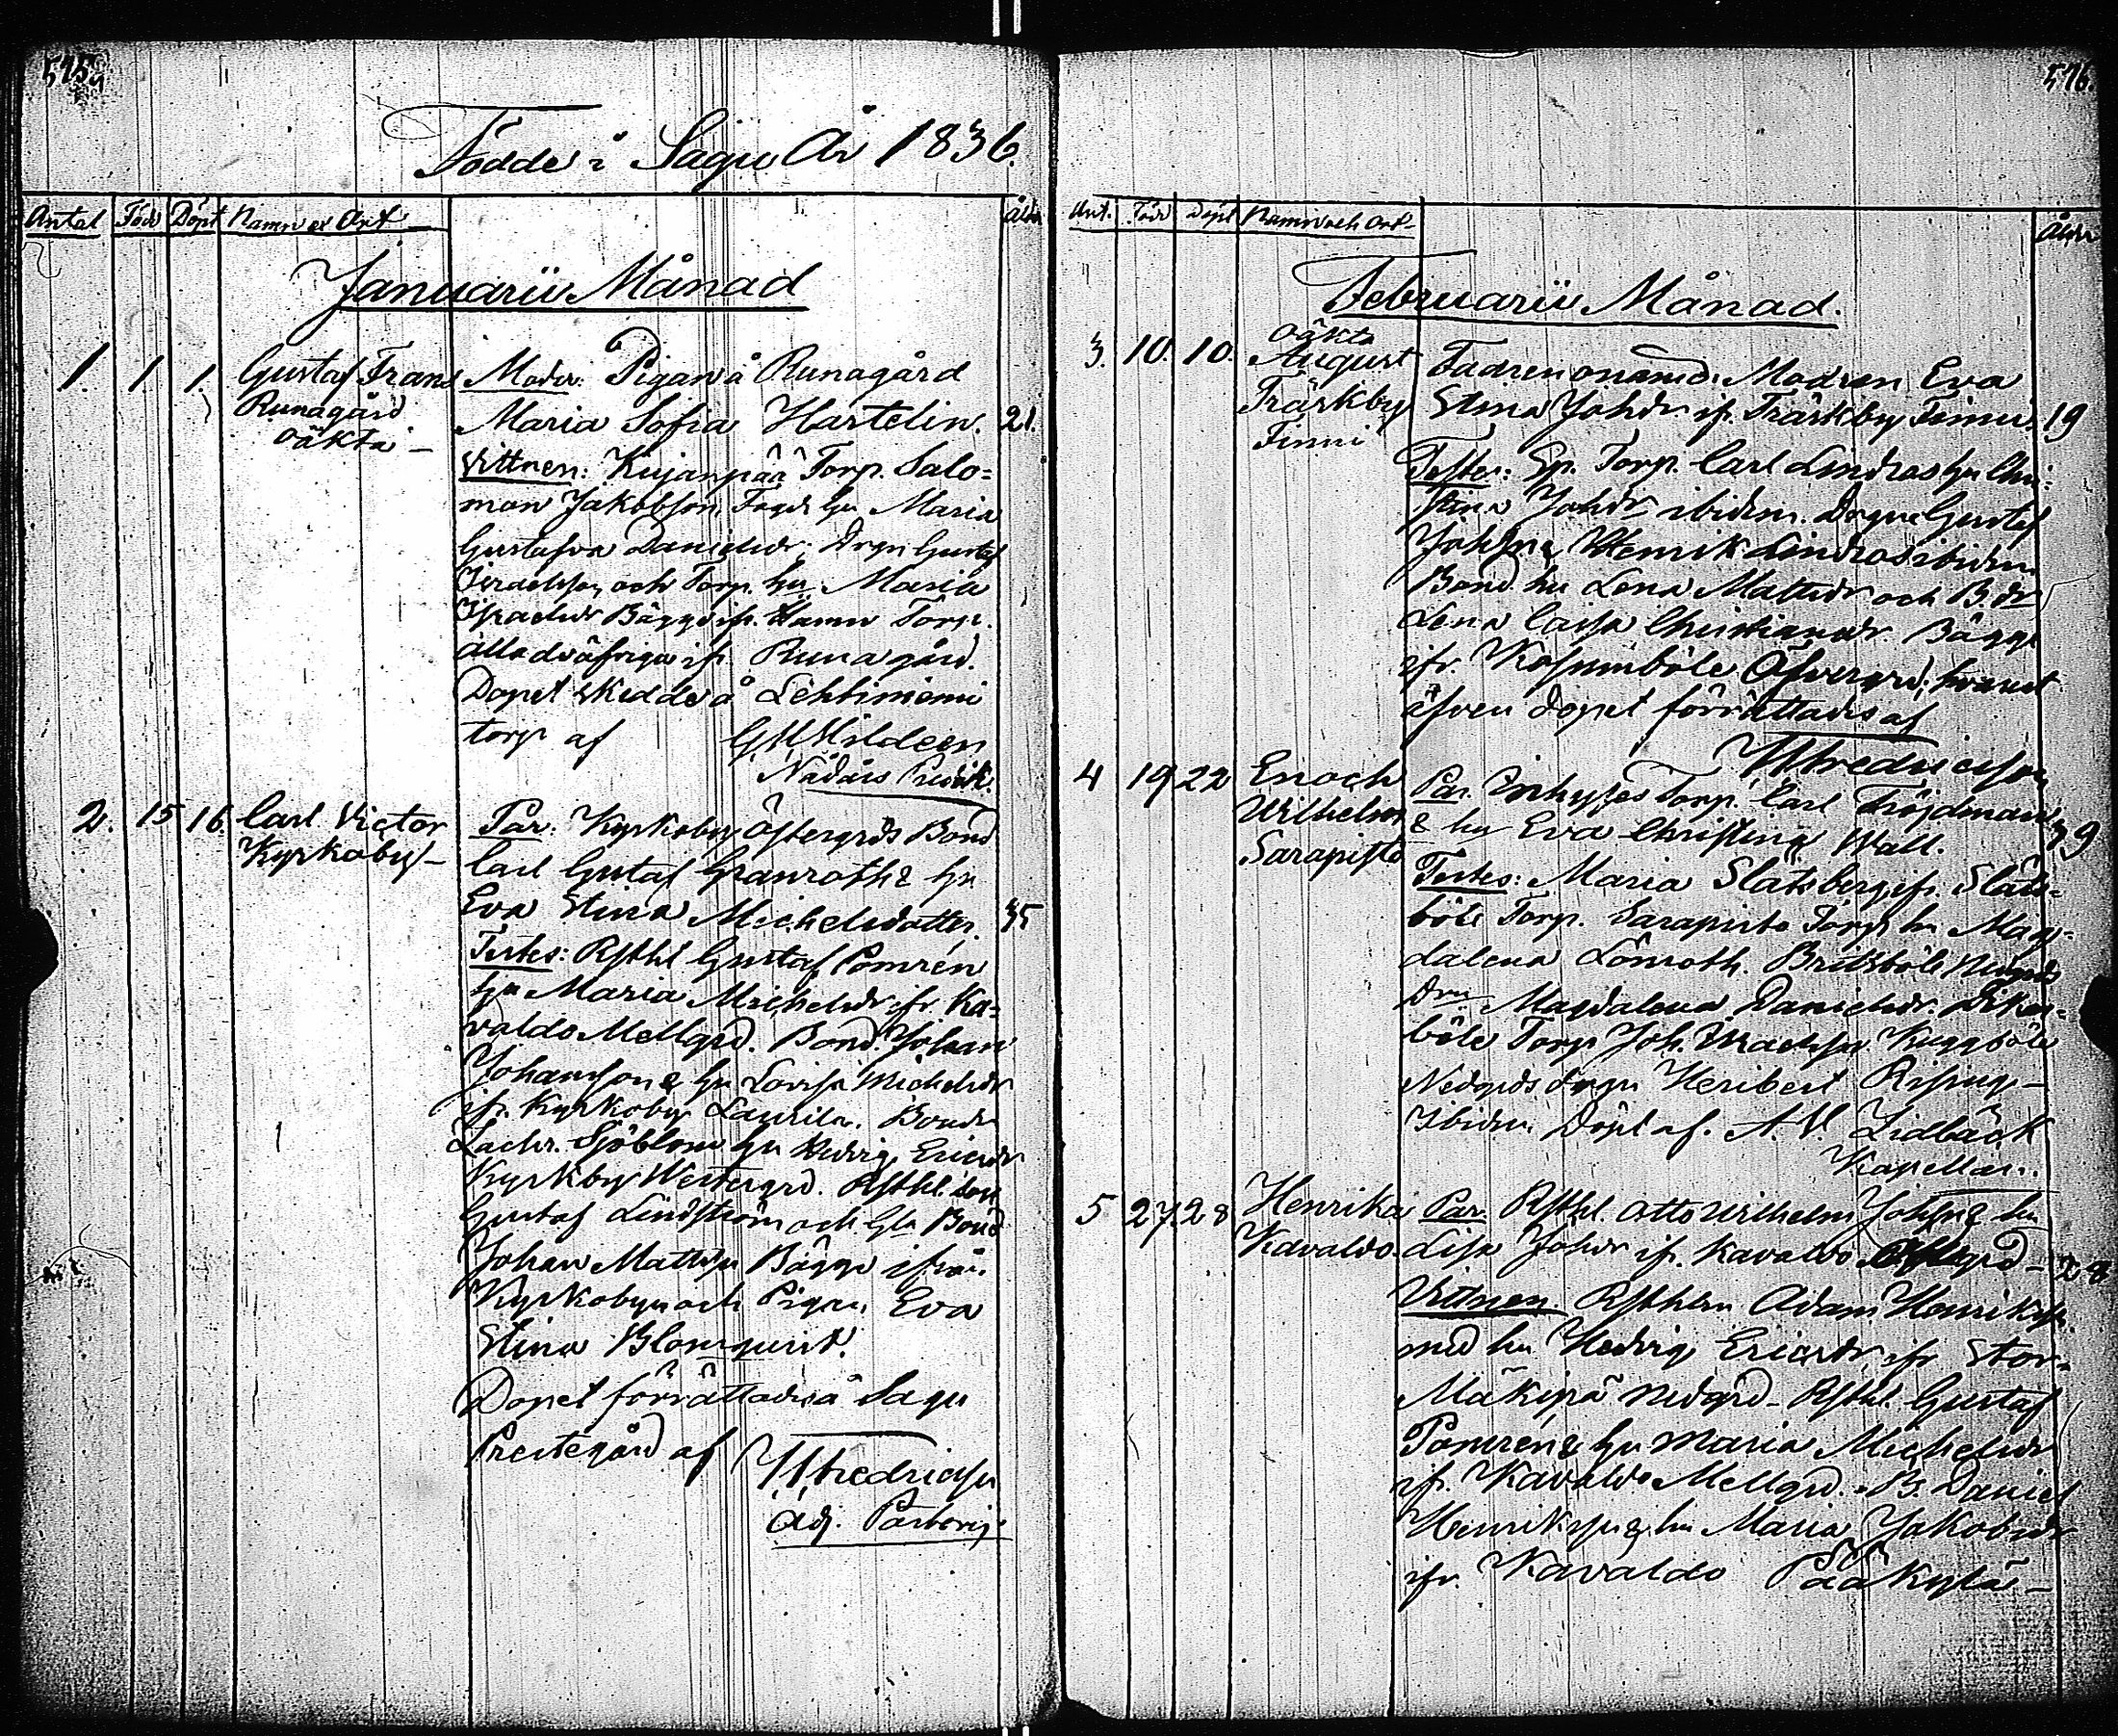 575.
Födde i Sagu År 1836.
Antal Född Döpt Namn o Ort Ålder
Januarii Månad
1. 1 1. Gustaf Frans
Runagård
oäkta –
Moder: Pigan å Runagård
Maria Sofia Hartelin. 21.
Vittnen: Kujanpää Torp. Salo=
mon Jakobson, hu Maria
Gustafva Danielsdr, Drgn Gustaf
och Torp. hu Maria
Israelsdr Bägge ifr. Torp.
alla de öfriga ifr. Runagård.
Dopet skedde å Lehtiniemi
torp af G Mildeen
Nådårs Predik.
2. 15 16. Carl Victor
Kyrkoby –
Par: Kyrkoby Östergrds Bond
Carl Gustaf Granroth & hu
Eva Stina Michelsdotter. 35
Testes: Rsthl Gustaf Pomrén
hu Maria Michelsdr ifr. Ka=
valdo Mellgrd. Bond. Johan
Johansson & hu Lovisa Michelsdr
ifr. Kyrkoby Laurila. Bonden
Zachr. Sjöblom hu Hedvig Ericsdr
Kyrkby Westergrd. Rsthl. son
Gustaf Lindström och Bond
Johan Mattsson Bägge ifrån
Kyrkobyn och Pigan Eva
Stina Blomqvist.
Dopet förrättades å Sagu
Prestegård af Fredricsn
Adj. Pastoris
576.
Ant. Född Döpt Namn och Ort – Ålder
Februarii Månad.
3. 10. 10. oäkta
August
Träskby
Finni
Fadren onämd. Modren Eva
Stina Johsdr ifr. Träskby Finni. 19
Testes: Torp. Carl Lindroos hu Chri=
stina Johsdr ibidem. Drgne Gustaf
Johsn & Henrik Lindroos ibidem
Bond. hu Lena Mattsdr och B.dr
Lena Caisa Christiansdr Bägge
ifr. Kasumböle Öfvergrd, hvarest
äfven dopet förrättades af
Fredricsson
4 19 22 Enoch
Wilhelm
Sarapisto
Par. Inhyses Torp. Carl Fröjdman
& hu Eva Christina Wall. 39
Testes: Maria Slätsberg ifr. Släts=
böle Torp. Sarapisto Torp. hu Mag=
dalena Lönroth. Britsböle Nedgrds
Drn Magdalena Danielsdr.
böle Torp. Joh. Kuggböle
Nedgrds drgn Heribert
Ibidem Döpt af. A. V. Lidbäck
Kapellan.
5 27. 28 Henrika
Kavaldo.
Par. Rsthl. Otto Wilhelm Johsn & hu
Lisa Johsdr ifr. Kavaldo – 28
Vittnen Rsthln Adam Henriksn
med hu Hedvig Ericsdr, ifr Stor=
Mäkipä Nedgrd – Rsthl. Gustaf
Pomrén & hu Maria Michelsdr
ifr. Kavaldo Mellgrd. B. Daniel
Henriksn & hu Maria Jakobsdr
ifr. Kavaldo Pääkylä –